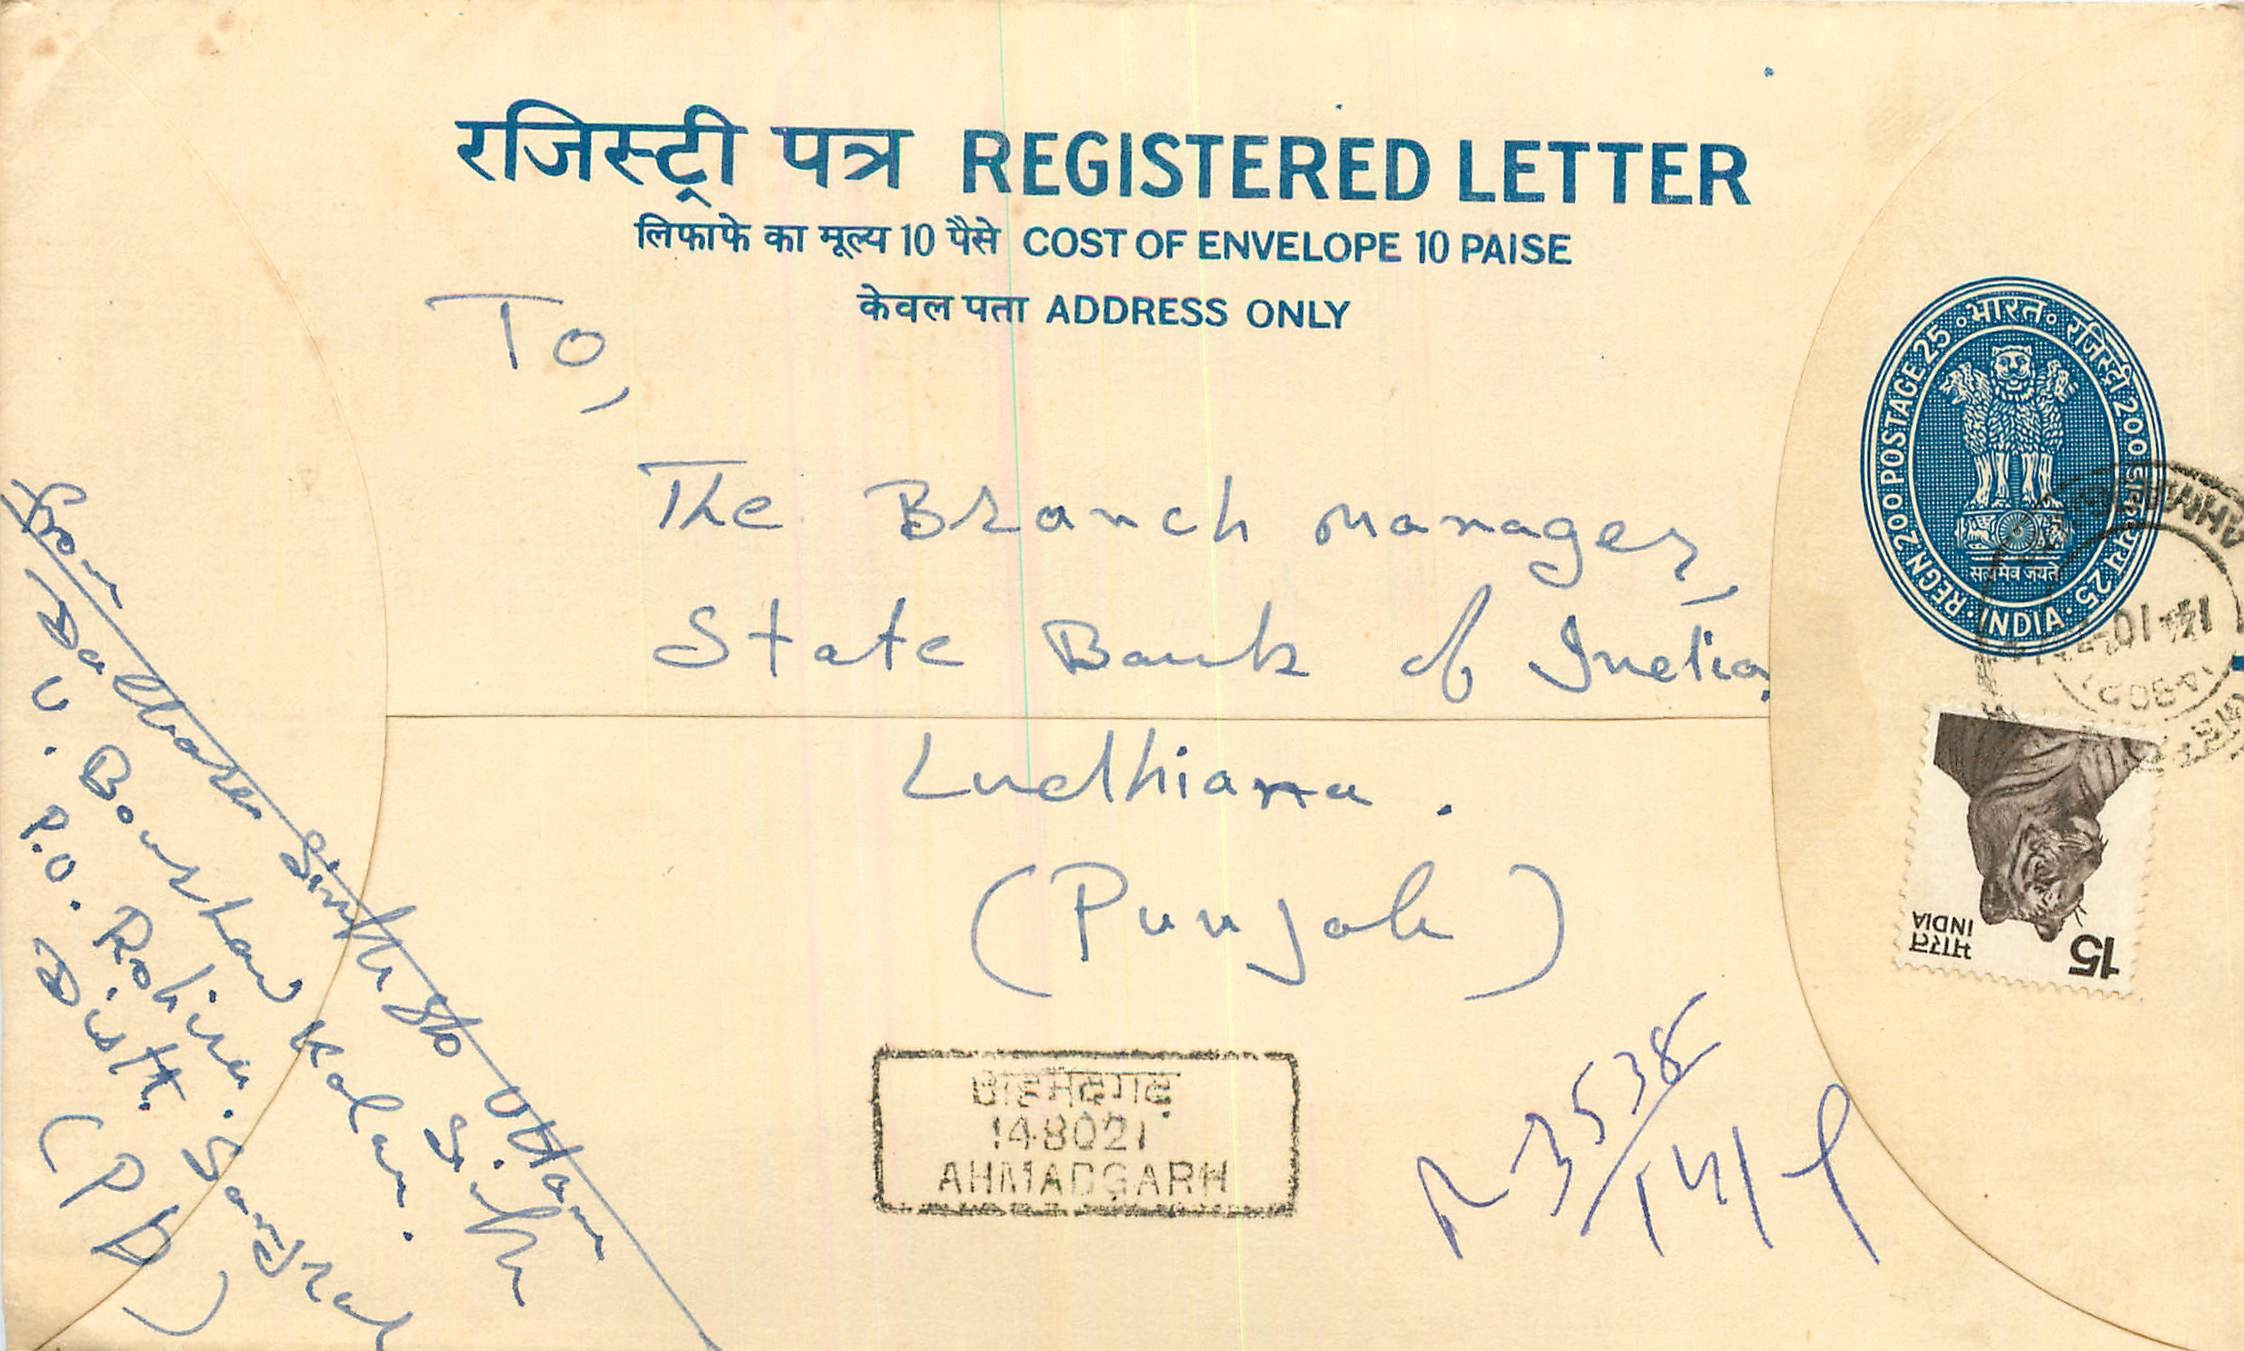 रजिस्ट्री पत्र REGISTERED LETTER
लिफाफे का मूल्य 10 पैसे COST OF ENVELOPE 10 PAISE
केवल पता ADDRESS ONLY
भारत रजिस्ट्री 200
REGN 200 POSTAGE 25
सत्यमेव जयते
INDIA
To,
The Branch manager,
State Bank of India,
Ludhiana.
(Punjab)
15
भारत
INDIA
अहमदगढ़
148021
AHMADGARH
R 3538
From
Singh S/o Uttam
Singh
V. Kalan.
P.O. Rohira.
Distt. Sangrur
(Pb)